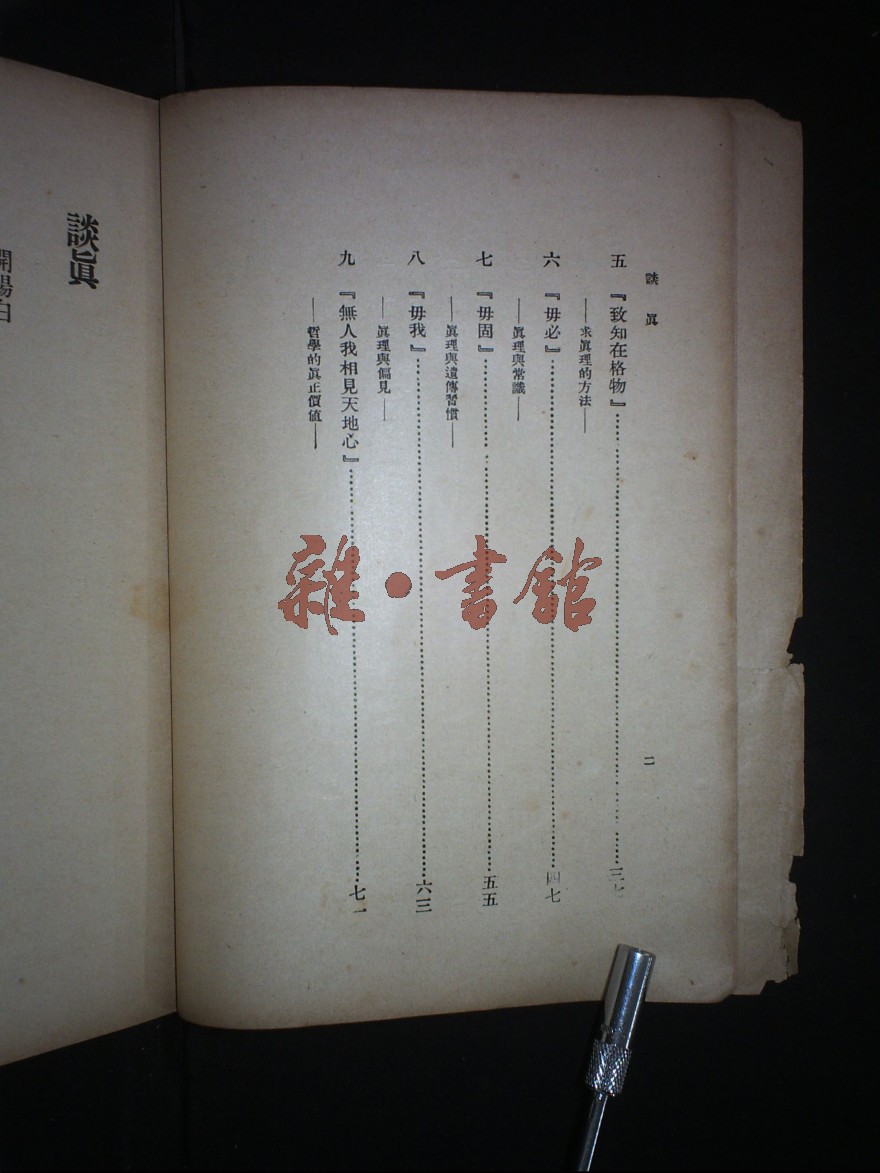 談眞
二
五 『致知在格物』……三七
——求眞理的方法——
六 『毋必』……四七
——眞理與常識——
七 『毋固』……五五
——眞理與遺傳習慣——
八 『毋我』……六三
——眞理與偏見——
九 『無人我相見天地心』……七一
——哲學的眞正價値——
談眞
雜·書館